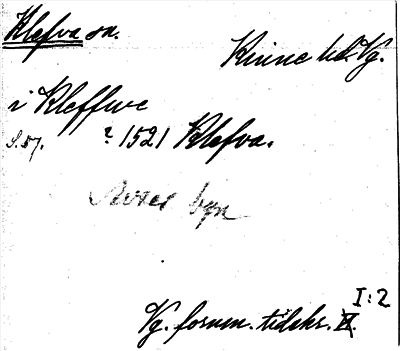 Klefva sn.
Kinne hd. Vg.
i Kleffwe
S. 57. ? 1521 Klefva.
byn
Vg. fornm. tidskr. I:2